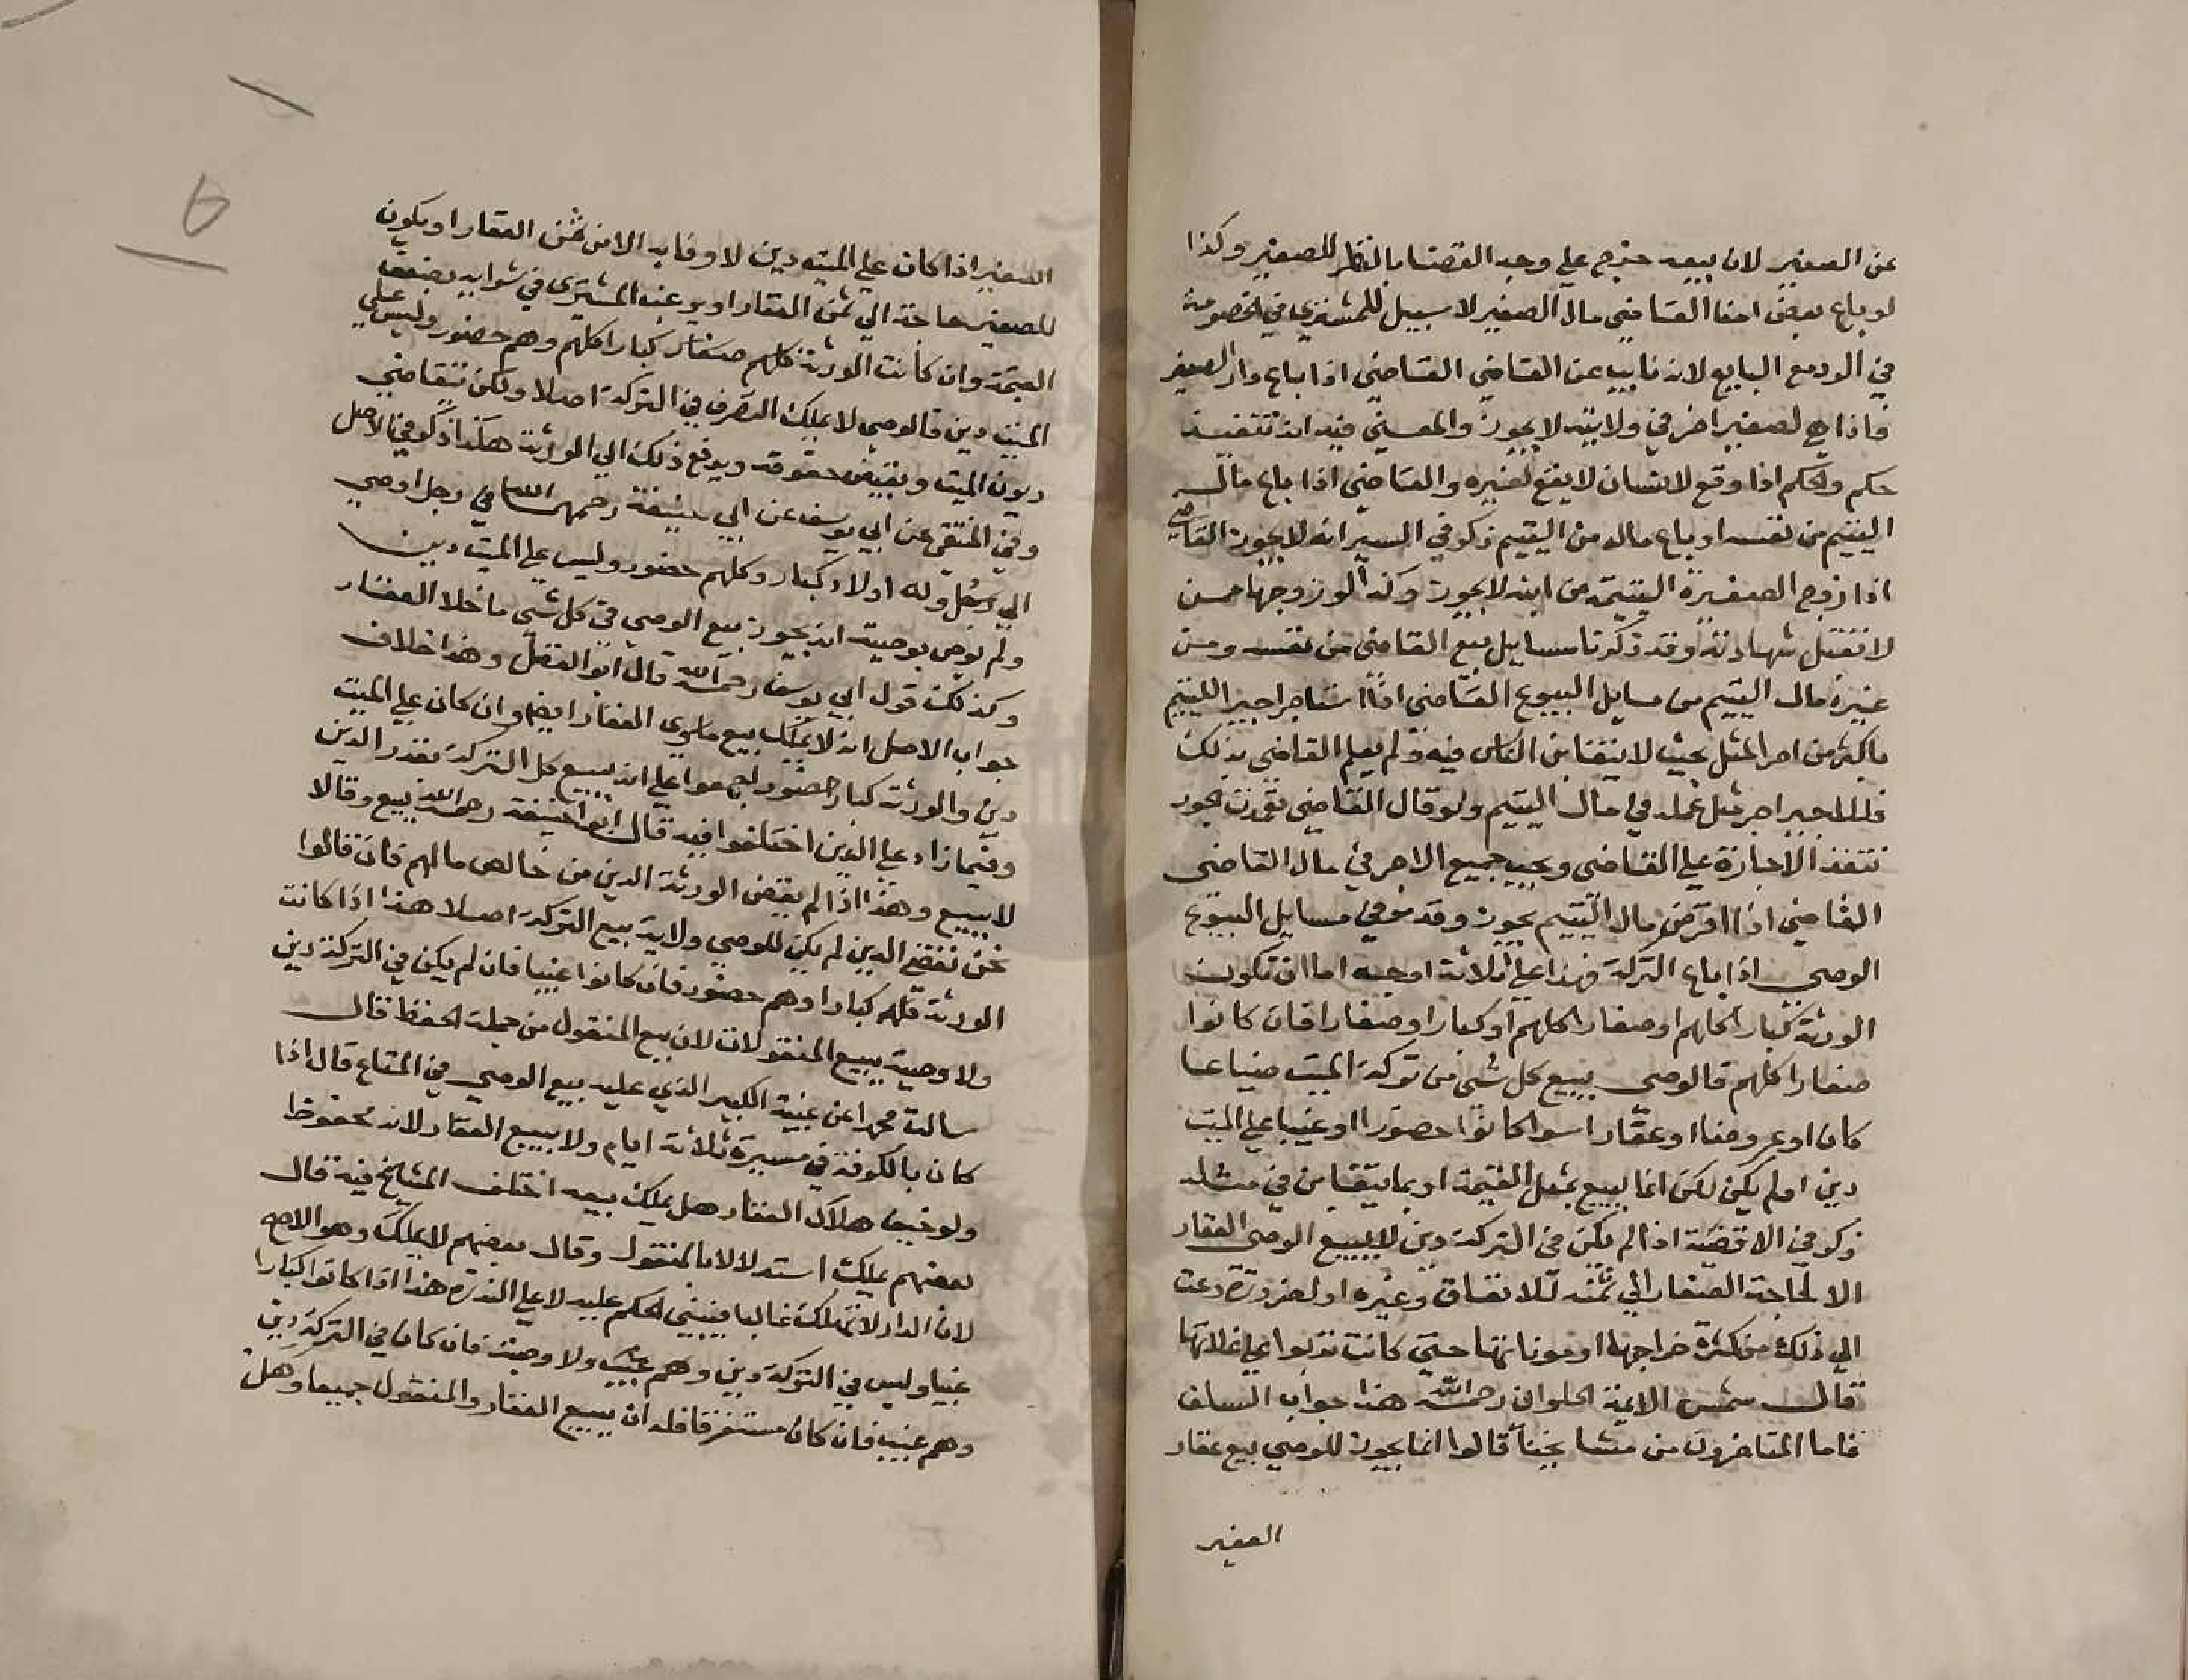 عن الصغير لان بيعه خرج على وجه القضا بالنظر للصغير وكذا
لو باع بعض امنا القاضي مال الصغير لا سبيل للمشتري في الخصومة
في الرد مع البايع لانه نايب عن القاضي القاضي اذا باع دار الصغير
فاذا هي لصغير اخر في ولايته لا يجوز والمعنى فيه ان تنفيذه
حكم والحكم اذا وقع لانسان لا يقع لغيره والقاضي اذا باع مال
اليتيم من نفسه او باع ماله من اليتيم ذكر في السير انه لا يجوز القاضي
اذا زوج الصغيرة اليتيمة من ابنه لا يجوز وكذا لو زوجها ممن
لا تقبل شهادته وقد ذكرنا مسايل بيع القاضي من نفسه ومن
غيره مال اليتيم من مسايل البيوع القاضي اذا استاجر اجيرا لليتيم
باكثر من اجر المثل بحيث لا يتغابن الناس فيه ولم يعلم القاضي بذلك
فللاجير اجر مثل عمله في مال اليتيم ولو قال القاضي تعمدت بجور
تنفذ الاجارة على القاضي ويجب جميع الاجر في مال القاضي
القاضي اذا اقرض مال اليتيم يجوز وقد مر في مسايل البيوع
الوصي اذا باع التركة فهذا على ثلاثة اوجه اما ان تكون
الورثة كبارا كلهم او صغارا كلهم او كبارا وصغارا فان كانوا
صغارا كلهم فالوصي يبيع كل شي من تركة الميت ضياعا
كان او عروضا او عقارا سوا كانوا حضورا او غيبا على الميت
دين او لم يكن لكن انما يبيع بمثل القيمة او بما يتغابن في مثله
ذكر في الاقضية اذا لم يكن في التركة دين لا يبيع الوصي العقار
الا لحاجة الصغار الي ثمنه للانفاق وغيره او لضرورة دعت
الي ذلك من كثرة خراجها او موناتها حتى كانت تربوا على غلاتها
قال شمس الايمة الحلواني رحمه الله هذا جواب السلف
فاما المتاخرون من مشايخنا قالوا انما يجوز للوصي بيع عقار
الصغير
الصغير اذا كان على الميت دين لا وفا به الا من ثمن العقار او يكون
للصغير حاجة الي ثمن العقار او يرغب المشترى في شرايه بضعف
القيمة وان كانت الورثة كلهم صغار كبارا كلهم وهم حضور وليس على
الميت دين فالوصي لا يملك التصرف في التركة اصلا ولكن يتقاضي
ديون الميت ويقبض حقوقه ويدفع ذلك الي الورثة هكذا ذكر في الاصل
وفي المنتقي عن ابي يوسف عن ابي حنيفة رحمهما الله في رجل اوصي
الي رجل وله اولاد كبار وكلهم حضور وليس على الميت دين
ولم يوص بوصية انه يجوز بيع الوصي في كل شي ما خلا العقار
وكذلك قول ابي يوسف رحمه الله قال ابو الفضل وهذا خلاف
جواب الاصل انه لا يملك بيع ما سوى العقار ايضا وان كان على الميت
دين والورثة كبار حضور اجمعوا على انه يبيع كل التركة بقدر الدين
وفيما زاد على الدين اختلفوا فيه قال ابو حنيفة رحمه الله يبيع وقالا
لا يبيع وهذا اذا لم يقض الورثة الدين من خالص مالهم فان قالوا
نحن نقضي الدين لم يكن للوصي ولاية بيع التركة اصلا هذا اذا كانت
الورثة كلهم كبارا وهم حضور فان كانوا غيبا فان لم يكن في التركة دين
ولا وصية يبيع المنقولات لان بيع المنقول من جملة الحفظ قال
سالت محمدا عن غيبة الكبير الذي عليه بيع الوصي في المتاع قال اذا
كان بالكوفة في مسيرة ثلاثة ايام ولا يبيع العقار لانه محفوظ
ولو خيف هلاك العقار هل يملك بيعه اختلف المشايخ فيه قال
بعضهم يملك استدلالا بالمنقول وقال بعضهم لا يملك وهو الاصح
لان الدار لا تملك غالبا فيبني الحكم عليه لا على الندرة هذا اذا كانوا كبارا
غيبا وليس في التركة دين وهم غيب ولا وصية فان كان في التركة دين
وهم غيب فان كان مستغرقا فله ان يبيع العقار والمنقول جميعا وهل
6